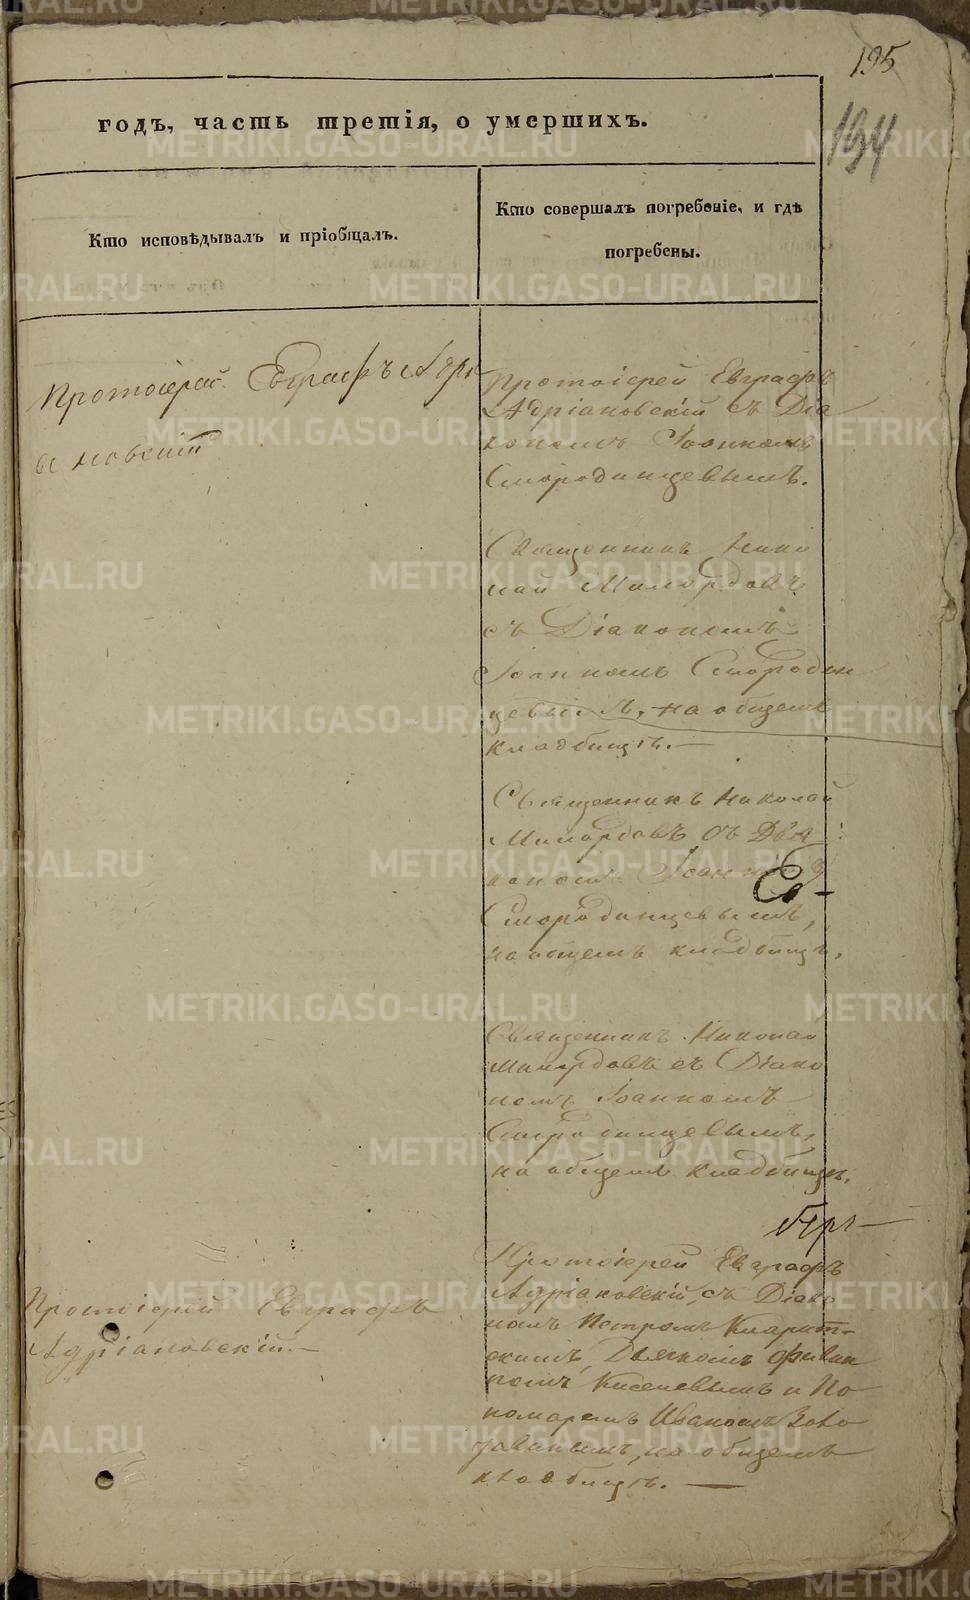 195
194
годъ, часть третія, о умершихъ.
Кто исповѣдывалъ и пріобщалъ.
Кто совершалъ погребеніе, и гдѣ
погребены.
Протоіерей Евграфъ Адрі
ановскій
Протоіерей Евграфъ
Адріановскій съ Діа
кономъ Іоанномъ
Смородинцевымъ.
Священникъ Нико
лай Милордовъ
съ Діакономъ
Іоанномъ Смородин
цевымъ, на общемъ
кладбищѣ.—
Священникъ Николай
Милордовъ съ Дія
кономъ Іоанномъ
Смородинцевымъ,
на общемъ кладбищѣ.
Священникъ Николай
Милордовъ съ Діако
номъ Іоанномъ
Смородинцевымъ,
на общемъ кладбищѣ.
Протоіерей Евграфъ
Адріановскій.—
Протоіерей Евграфъ
Адріановскій, съ Діако
номъ Петромъ
скимъ, Дьячкомъ Филип
помъ Киселевымъ и По
номаремъ Иваномъ
на общемъ
кладбищѣ.—
METRIKI.GASO-URAL.RU